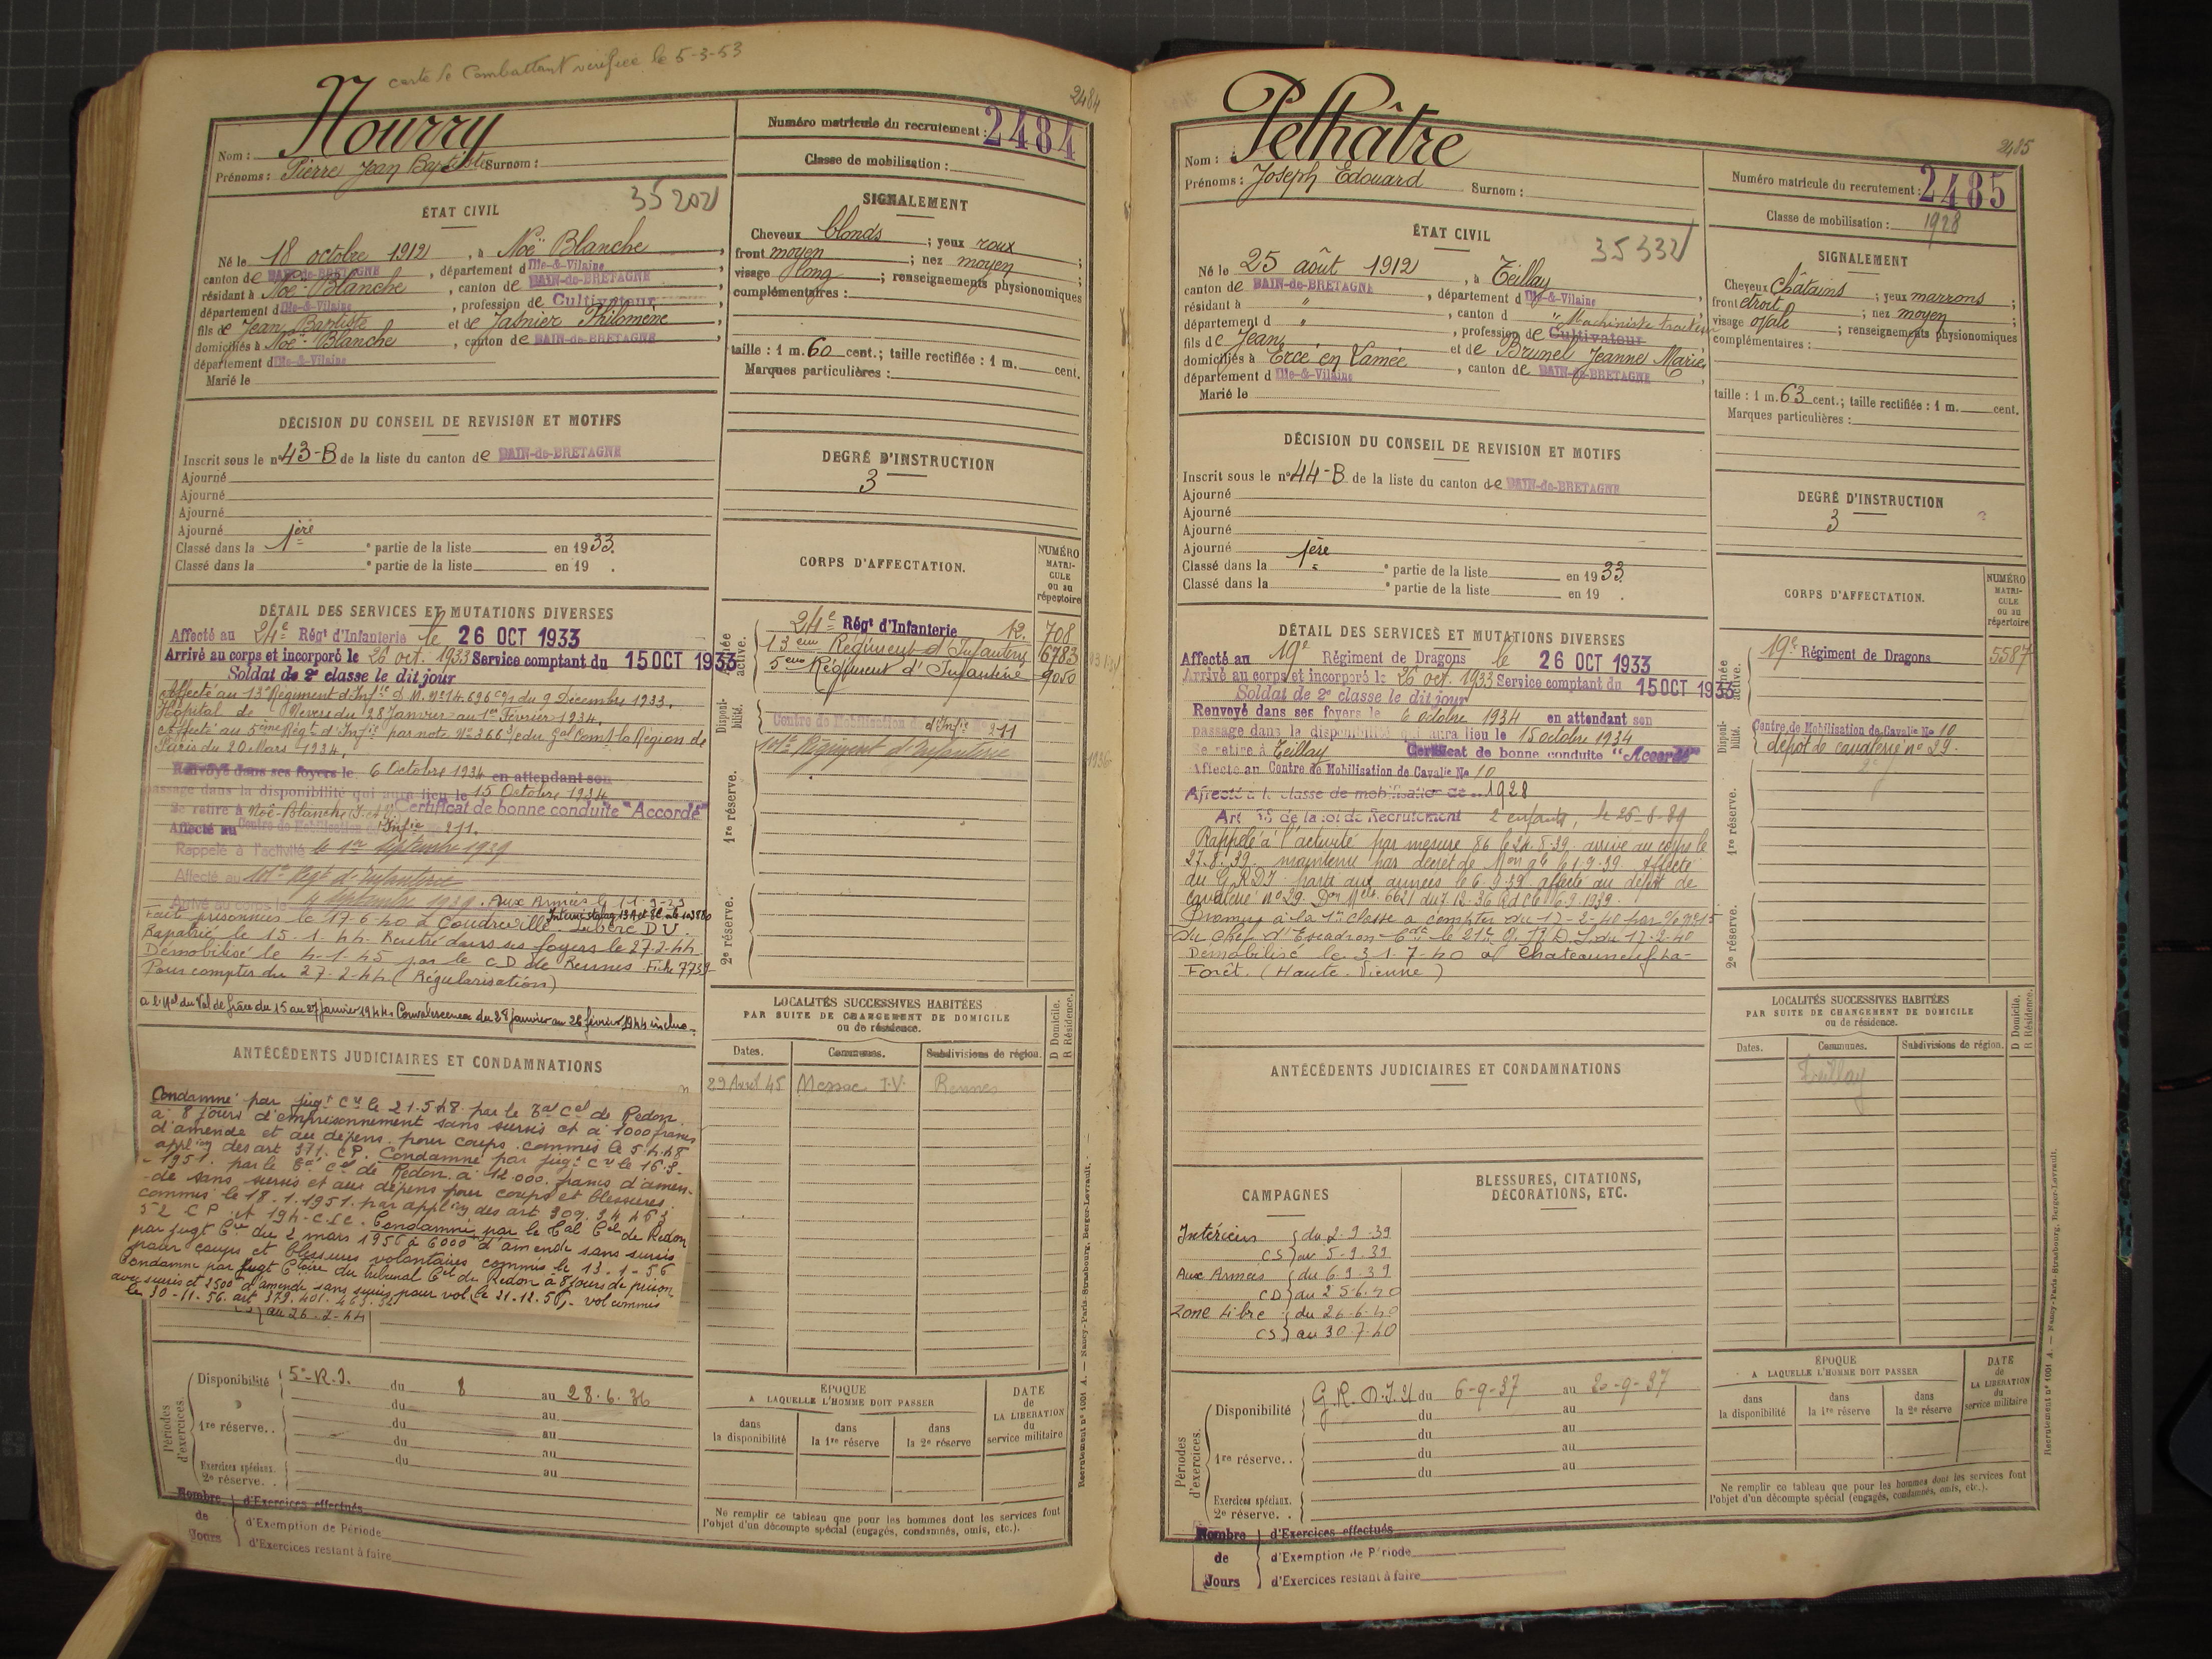 carte de Combattant vérifiée le 5-3-53
2484
Nom : Nourry
Prénoms : Pierre Jean Baptiste Surnom :
35202
Numéro matricule du recrutement : 2484
Classe de mobilisation :
ÉTAT CIVIL
Né le 18 octobre 1912, à Noë Blanche,
canton de BAIN-de-BRETAGNE, département d Ille-&-Vilaine,
résidant à Noë-Blanche, canton de BAIN-de-BRETAGNE,
département d Ille-&-Vilaine, profession de Cultivateur,
fils de Jean Baptiste et de Jasnier Philomène,
domiciliés à Noë-Blanche, canton de BAIN-de-BRETAGNE,
département d Ille-&-Vilaine
Marié le
SIGNALEMENT
Cheveux blonds ; yeux roux ;
front moyen ; nez moyen ;
visage long ; renseignements physionomiques
complémentaires :
taille : 1 m. 60 cent. ; taille rectifiée : 1 m. cent.
Marques particulières :
DÉCISION DU CONSEIL DE REVISION ET MOTIFS
Inscrit sous le n° 43-B de la liste du canton de BAIN-de-BRETAGNE
Ajourné
Ajourné
Ajourné
Ajourné
Classé dans la 1ère partie de la liste en 1933.
Classé dans la e partie de la liste en 19 .
DEGRÉ D'INSTRUCTION
3
DÉTAIL DES SERVICES ET MUTATIONS DIVERSES
Affecté au 24e Régt d'Infanterie le 26 OCT 1933
Arrivé au corps et incorporé le 26 oct. 1933 Service comptant du 15 OCT 1933
Soldat de 2e classe le dit jour
Affecté au 13e Régiment d'Infie d. M. N° 14.696 du 9 Décembre 1933.
Hôpital de Nevers du 28 Janvier au 1er Février 1934.
Affecté au 5ème Régt d'Infie par note N° 366 du Gal Comt la Région de
Paris du 20 Mars 1934.
Renvoyé dans ses foyers le 6 Octobre 1934 en attendant son
passage dans la disponibilité qui aura lieu le 15 Octobre 1934
Se retire à Noë-Blanche Certificat de bonne conduite "Accordé"
Affecté au Centre de Mobilisation d'Infie 211.
Rappelé à l'activité le 1er Septembre 1939
Affecté au Régt d'Infanterie
Arrivé au corps le 4 septembre 1939. Aux Armées le
Fait prisonnier le 17-6-40 à Coudreville. Interné stalag Libéré D.V.
Rapatrié le 15.1.44. Rentré dans ses foyers le 27-2-44
Démobilisé le 4-1-45 par le C D de Rennes Fiche 7739
Pour compter du 27-2-44 (Régularisation)
a l'Hal du Val de Grâce du 15 au 27 janvier 1944. Convalescence du 28 janvier au 26 février 1944 inclus.
CORPS D'AFFECTATION.
NUMÉRO MATRICULE ou au répertoire
Armée active.
24e Régt d'Infanterie 12. 708
13ème Régiment d'Infanterie 6783
5ème Régiment d'Infanterie 9050
Disponibilité.
Centre de Mobilisation d'Infie 211
Régiment d'Infanterie
1re réserve.
2e réserve.
LOCALITÉS SUCCESSIVES HABITÉES
PAR SUITE DE CHANGEMENT DE DOMICILE
ou de résidence.
Dates. Communes. Subdivisions de région. D Domicile. R Résidence.
29 Avril 45 Messac I.V. Rennes
ANTÉCÉDENTS JUDICIAIRES ET CONDAMNATIONS
Condamné par jugt Cre le 21.5.48 par le Tal Cel de Redon
à 8 jours d'emprisonnement sans sursis et à 1000 francs
d'amende et au dépens pour coups commis le 5.4.48
applon des art 311 CP. Condamné par jugt Cre le 16.3-
-1951 par le Tal Cel de Redon à 12.000 francs d'amen-
-de sans sursis et aux dépens pour coups et blessures
commis le 18.1.1951. par applon des art 309. 
52 CP et 194 C.I.C. Condamné par le Tal Cel de Redon
par jugt Cre du 2 mars 1956 à 6000 d'amende sans sursis
pour coups et blessures volontaires commis le 13-1-56
Condamné par jugt Cre du tribunal Cel de Redon à 8 jours de prison
avec sursis et 2500 d'amende sans sursis pour vol le 21.12.56. vol commis
le 30-11-56. art 379. 401. 463.
au 26.2-44
Périodes d'exercices.
Disponibilité 5e R.I. du 8 au 28.6.36
du au
1re réserve. . du au
du au
du au
Exercices spéciaux. 2e réserve. .
ÉPOQUE
A LAQUELLE L'HOMME DOIT PASSER
dans la disponibilité dans la 1re réserve dans la 2e réserve
DATE de LA LIBÉRATION du service militaire
Ne remplir ce tableau que pour les hommes dont les services font
l'objet d'un décompte spécial (engagés, condamnés, omis, etc.).
Nombre de Jours
d'Exercices effectués
d'Exemption de Période
d'Exercices restant à faire
Recrutement n° 1001 A. — Nancy-Paris-Strasbourg, Berger-Levrault.
2485
Nom : Pelhâtre
Prénoms : Joseph Edouard Surnom :
35332
Numéro matricule du recrutement : 2485
Classe de mobilisation : 1928
ÉTAT CIVIL
Né le 25 août 1912, à Teillay,
canton de BAIN-de-BRETAGNE, département d Ille-&-Vilaine,
résidant à " , canton d "
département d " , profession de Cultivateur Machiniste tracteur
fils de Jean et de Brunel Jeanne Marie,
domiciliés à Ercé en Lamée, canton de BAIN-de-BRETAGNE,
département d Ille-&-Vilaine
Marié le
SIGNALEMENT
Cheveux châtains ; yeux marrons ;
front étroit ; nez moyen ;
visage ovale ; renseignements physionomiques
complémentaires :
taille : 1 m. 63 cent. ; taille rectifiée : 1 m. cent.
Marques particulières :
DÉCISION DU CONSEIL DE REVISION ET MOTIFS
Inscrit sous le n° 44-B de la liste du canton de BAIN-de-BRETAGNE
Ajourné
Ajourné
Ajourné
Ajourné
Classé dans la 1ère partie de la liste en 1933
Classé dans la e partie de la liste en 19 .
DEGRÉ D'INSTRUCTION
3
DÉTAIL DES SERVICES ET MUTATIONS DIVERSES
Affecté au 19e Régiment de Dragons le 26 OCT 1933
Arrivé au corps et incorporé le 26 oct. 1933 Service comptant du 15 OCT 1933
Soldat de 2e classe le dit jour
Renvoyé dans ses foyers le 6 octobre 1934 en attendant son
passage dans la disponibilité qui aura lieu le 15 octobre 1934
Se retire à Teillay Certificat de bonne conduite "Accordé"
Affecté au Centre de Mobilisation de Cavalie No 10
Affecté à la classe de mobilisation de 1928
Art 58 de la loi de Recrutement 2 enfants, le
Rappelé à l'activité par mesure 86 le 24.8.39 arrivé au corps le
27.8.39. maintenu par décret de Mon gle 1.9.39 Affecté
au G.R.D.I. parti aux armées le 6.9.39 affecté au dépôt de
cavalerie n° 29. Don Mle 6621 du 7.12.36
Promu à la 1re classe à compter du 17-2-40 par
du Chef d'Escadron Cdt le 21e G.R.D.I. du 17.2.40
Démobilisé le 31.7-40 à Chateauneuf-la-
Forêt. (Haute-Vienne)
CORPS D'AFFECTATION.
NUMÉRO MATRICULE ou au répertoire
Armée active.
19e Régiment de Dragons 5587
Disponibilité.
Centre de Mobilisation de Cavalie No 10
dépôt de cavalerie n° 29.
1re réserve.
2e réserve.
LOCALITÉS SUCCESSIVES HABITÉES
PAR SUITE DE CHANGEMENT DE DOMICILE
ou de résidence.
Dates. Communes. Subdivisions de région. D Domicile. R Résidence.
Teillay
ANTÉCÉDENTS JUDICIAIRES ET CONDAMNATIONS
CAMPAGNES
BLESSURES, CITATIONS, DÉCORATIONS, ETC.
Intérieur du 2-9-39
CS au 5-9-39
Aux Armées du 6.9.39
CD au 25.6.40
Zone Libre du 26-6-40
CS au 30-7-40
Périodes d'exercices.
Disponibilité G.R.D.I. 21 du 6-9-37 au 20-9-37
du au
1re réserve. . du au
du au
du au
Exercices spéciaux. 2e réserve. .
ÉPOQUE
A LAQUELLE L'HOMME DOIT PASSER
dans la disponibilité dans la 1re réserve dans la 2e réserve
DATE de LA LIBÉRATION du service militaire
Ne remplir ce tableau que pour les hommes dont les services font
l'objet d'un décompte spécial (engagés, condamnés, omis, etc.).
Nombre de Jours
d'Exercices effectués
d'Exemption de Période
d'Exercices restant à faire
Recrutement n° 1001 A. — Nancy-Paris-Strasbourg, Berger-Levrault.